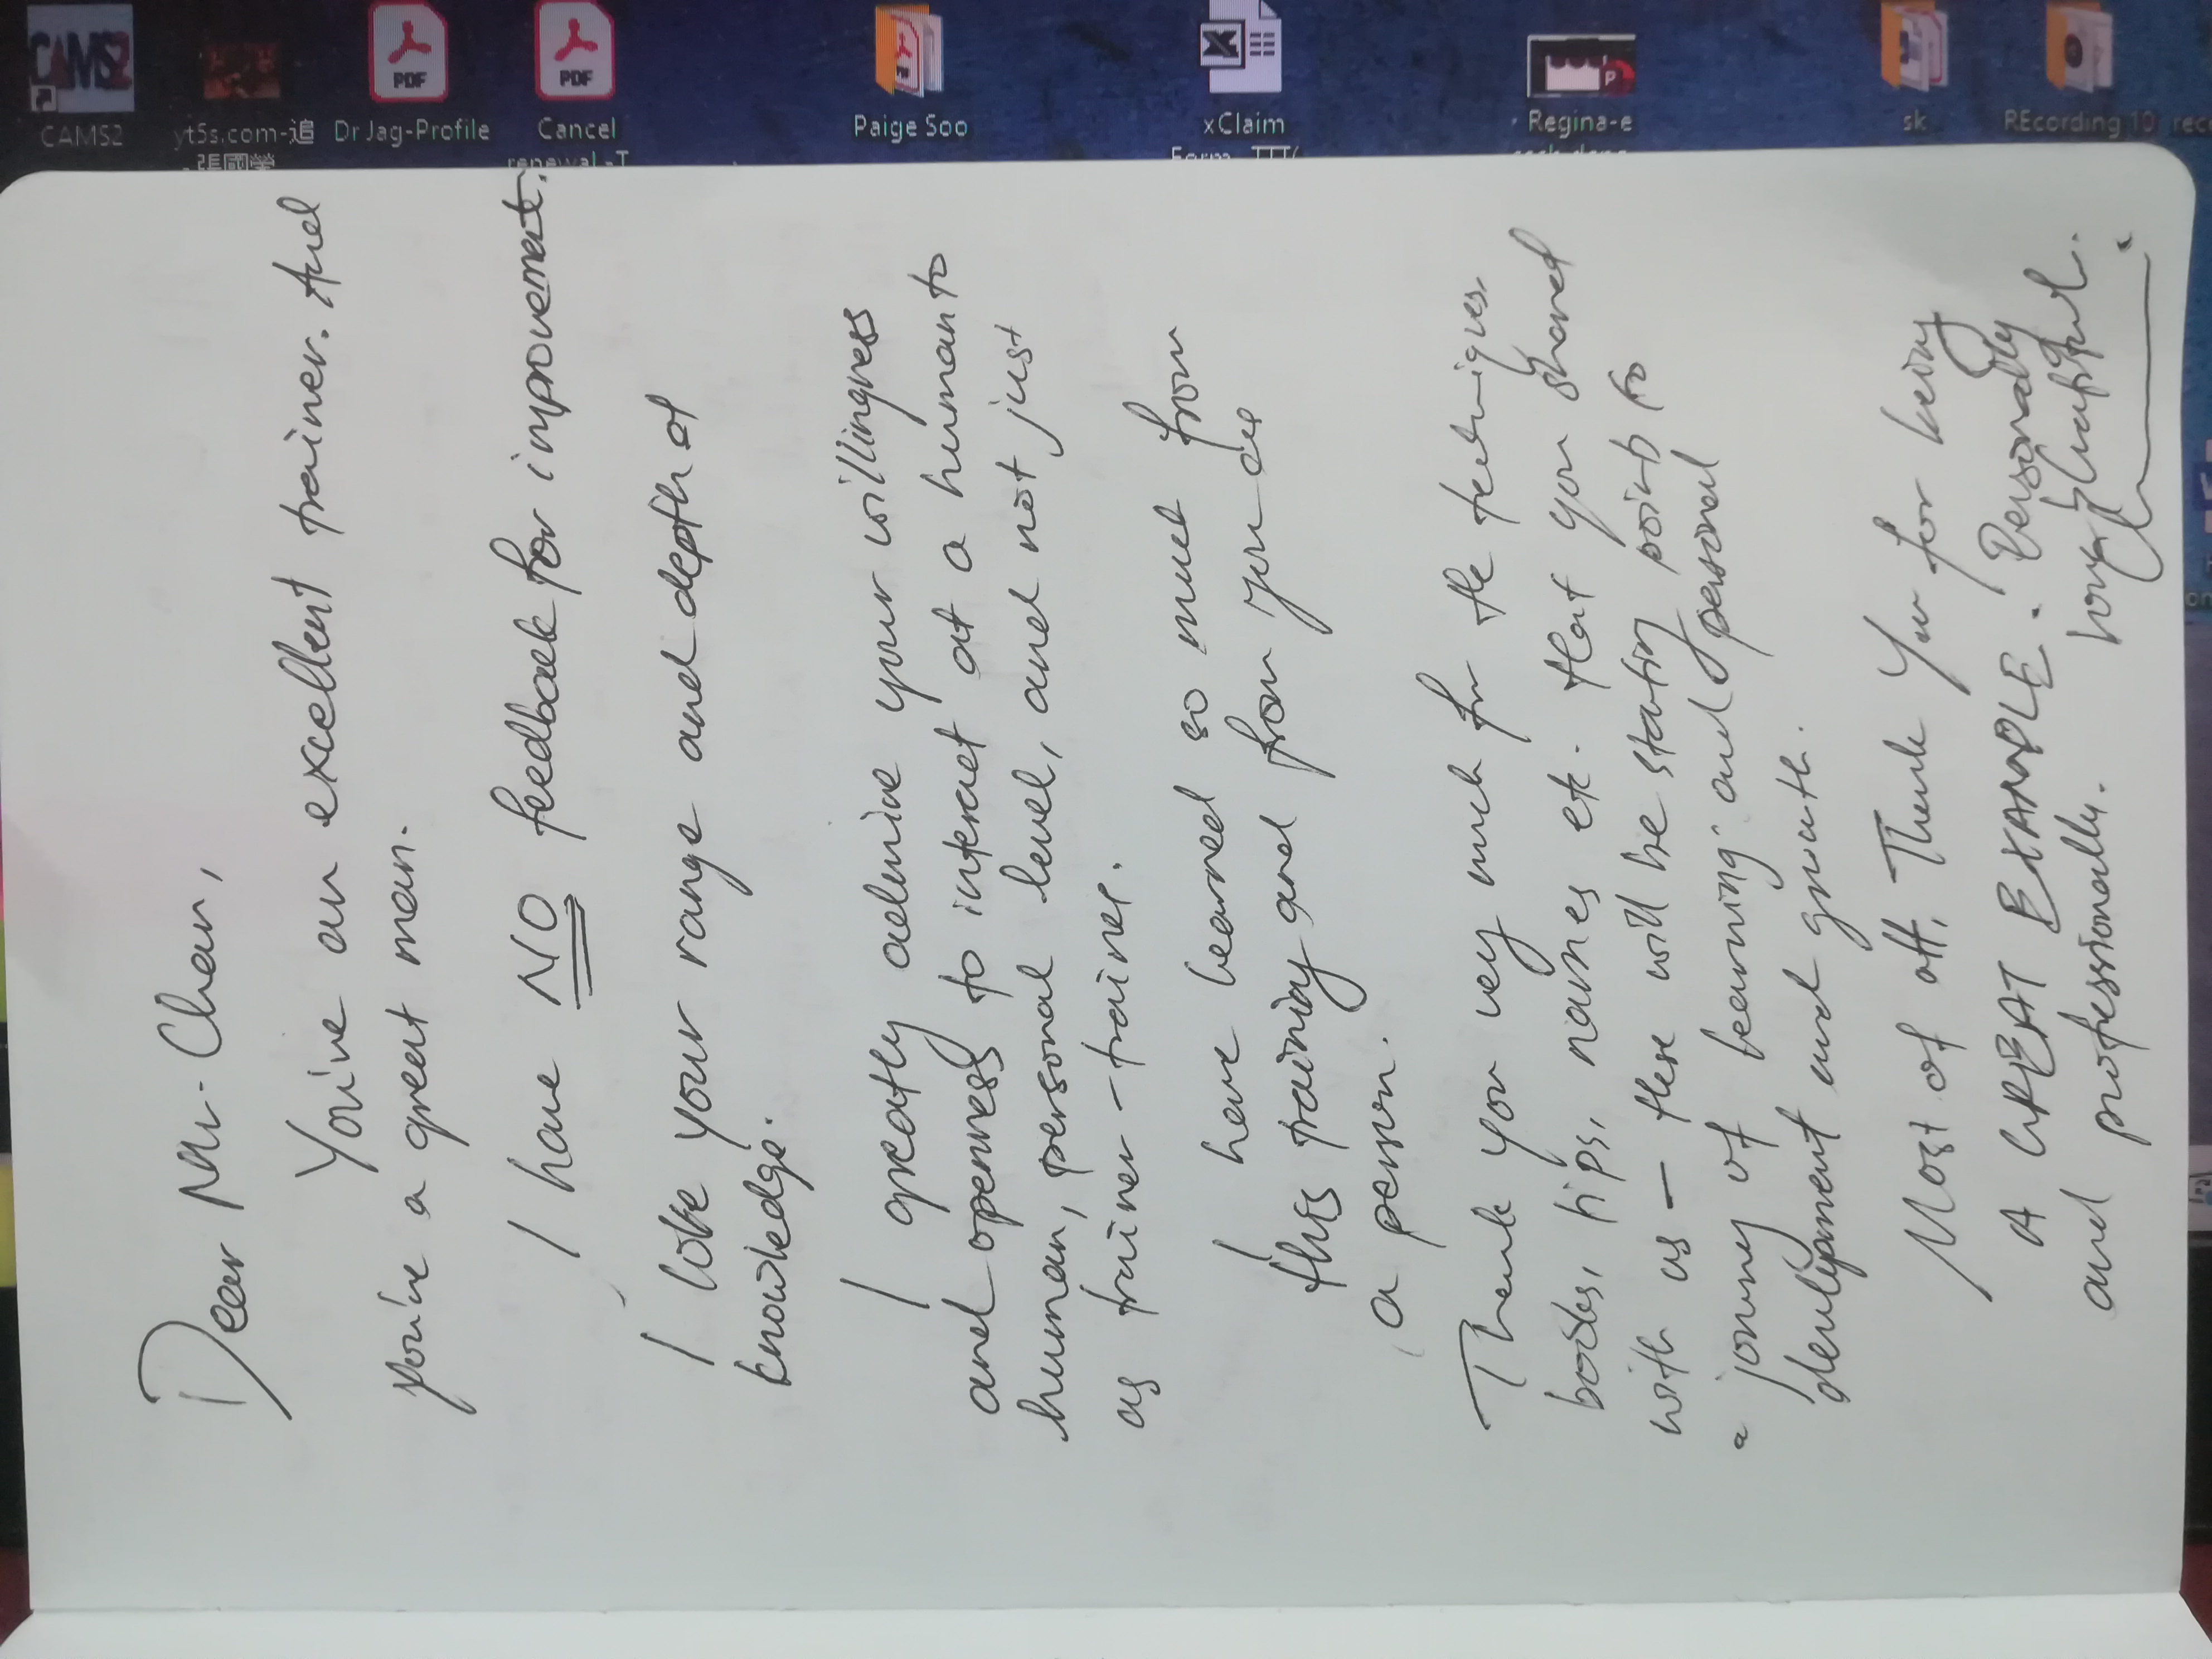 CAMS2
yt5s.com-追
張國榮
Dr Jag-Profile
PDF
Cancel
renewal -T
PDF
Paige Soo
xClaim
Form
Regina-e
sk
REcording 10
Dear Mr. Chan,
You're an excellent trainer. And
you're a great man.
I have NO feedback for improvement.
I love your range and depth of
knowledge.
I greatly admire your willingness
and openness to interact at a human to
human, personal level, and not just
as trainer-trainer.
I have learned so much from
this training and from you as
a person.
Thank you very much for the techniques,
books, tips, names etc. that you shared
with us - these will be starting points to
a journey of learning and personal
development and growth.
Most of all, Thank You for being
A GREAT EXAMPLE. Personally
and professionally.